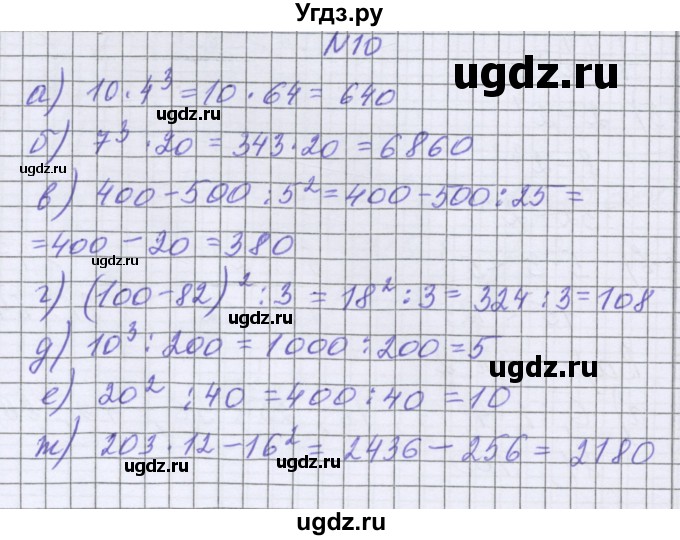 Угдз.ру
N10
ugdz.ru
а) 10·4³=10·64=640
ugdz.ru
б) 7³·20=343·20=6860
ugdz.ru
в) 400-500:5²=400-500:25=
=400-20=380
ugdz.ru
г) (100-82)²:3=18²:3=324:3=108
ugdz.ru
д) 10³:200=1000:200=5
ugdz.ru
е) 20²:40=400:40=10
ж) 203·12-16²=2436-256=2180
ugdz.ru
ugdz.ru
ugdz.ru